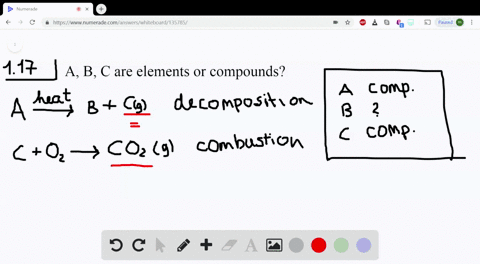 Numerade
https://www.numerade.com/answers/whiteboard/135785/
Paused
1.17 A, B, C are elements or compounds?
A heat → B + C(g) decomposition
=
C + O₂ → CO₂ (g) combustion
A comp.
B ?
C comp.
A